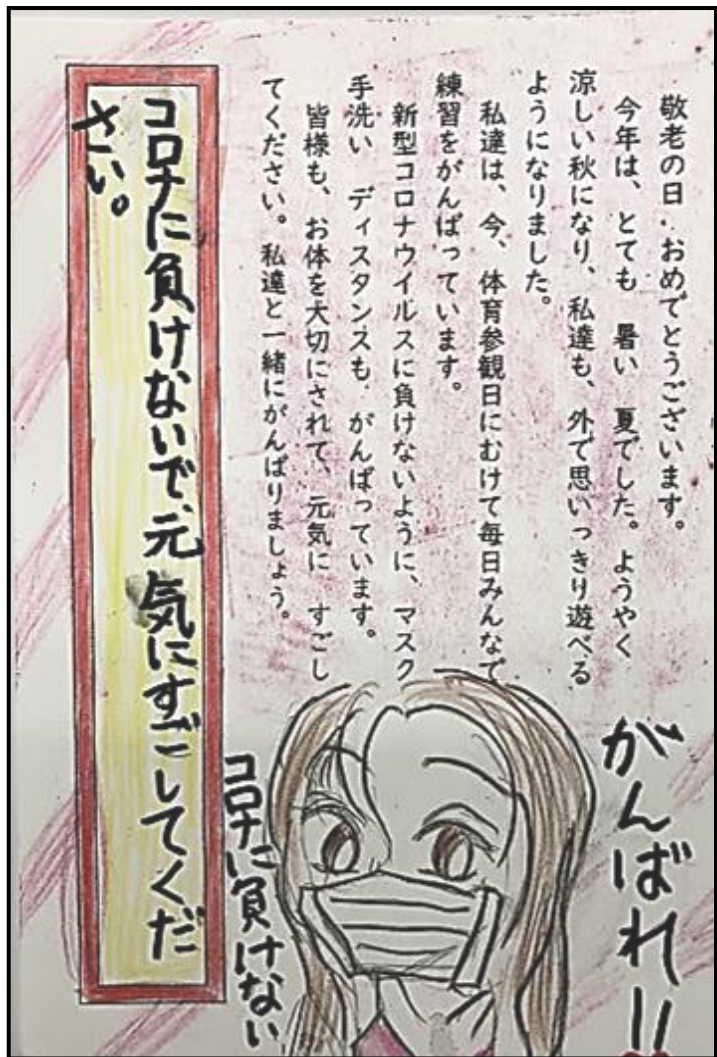 敬老の日．おめでとうございます。
今年は、とても　暑い　夏でした。ようやく
涼しい秋になり、私達も、外で思いっきり遊べる
ようになりました。
私達は、今、体育参観日にむけて毎日みんなで
練習をがんばっています。
新型コロナウイルスに負けないように、マスク
手洗い　ディスタンスも．がんばっています。
皆様も、お体を大切にされて、元気に　すごし
てください。私達と一緒にがんばりましょう。
がんばれ!!
コロナに負けない
コロナに負けないで、元気にすごしてくだ
さい。